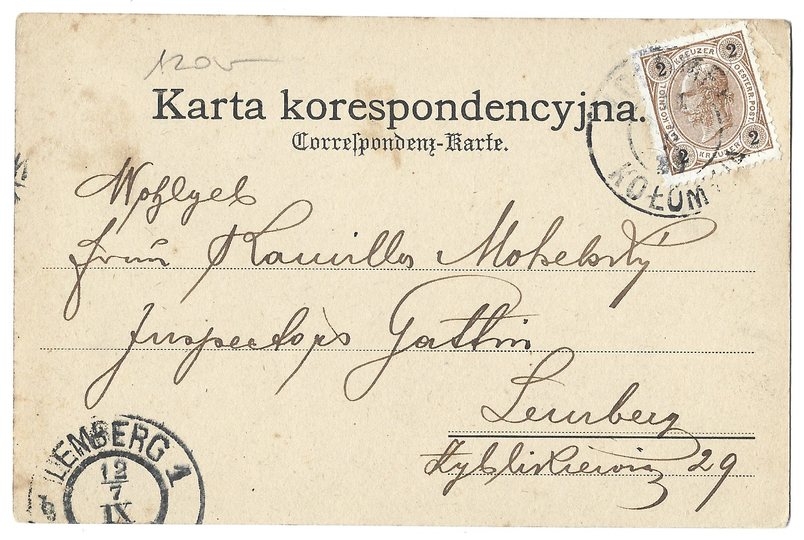 120
Karta korespondencyjna.
Correspondenz-Karte.
2 KREUZER 2
2 KREUZER 2
KOŁOM
Wohlgeb
Frau Kamilla Mokelsky
Inspectors Gattin
Lemberg
Zyblikiewicz 29
LEMBERG 1
12
7
IX